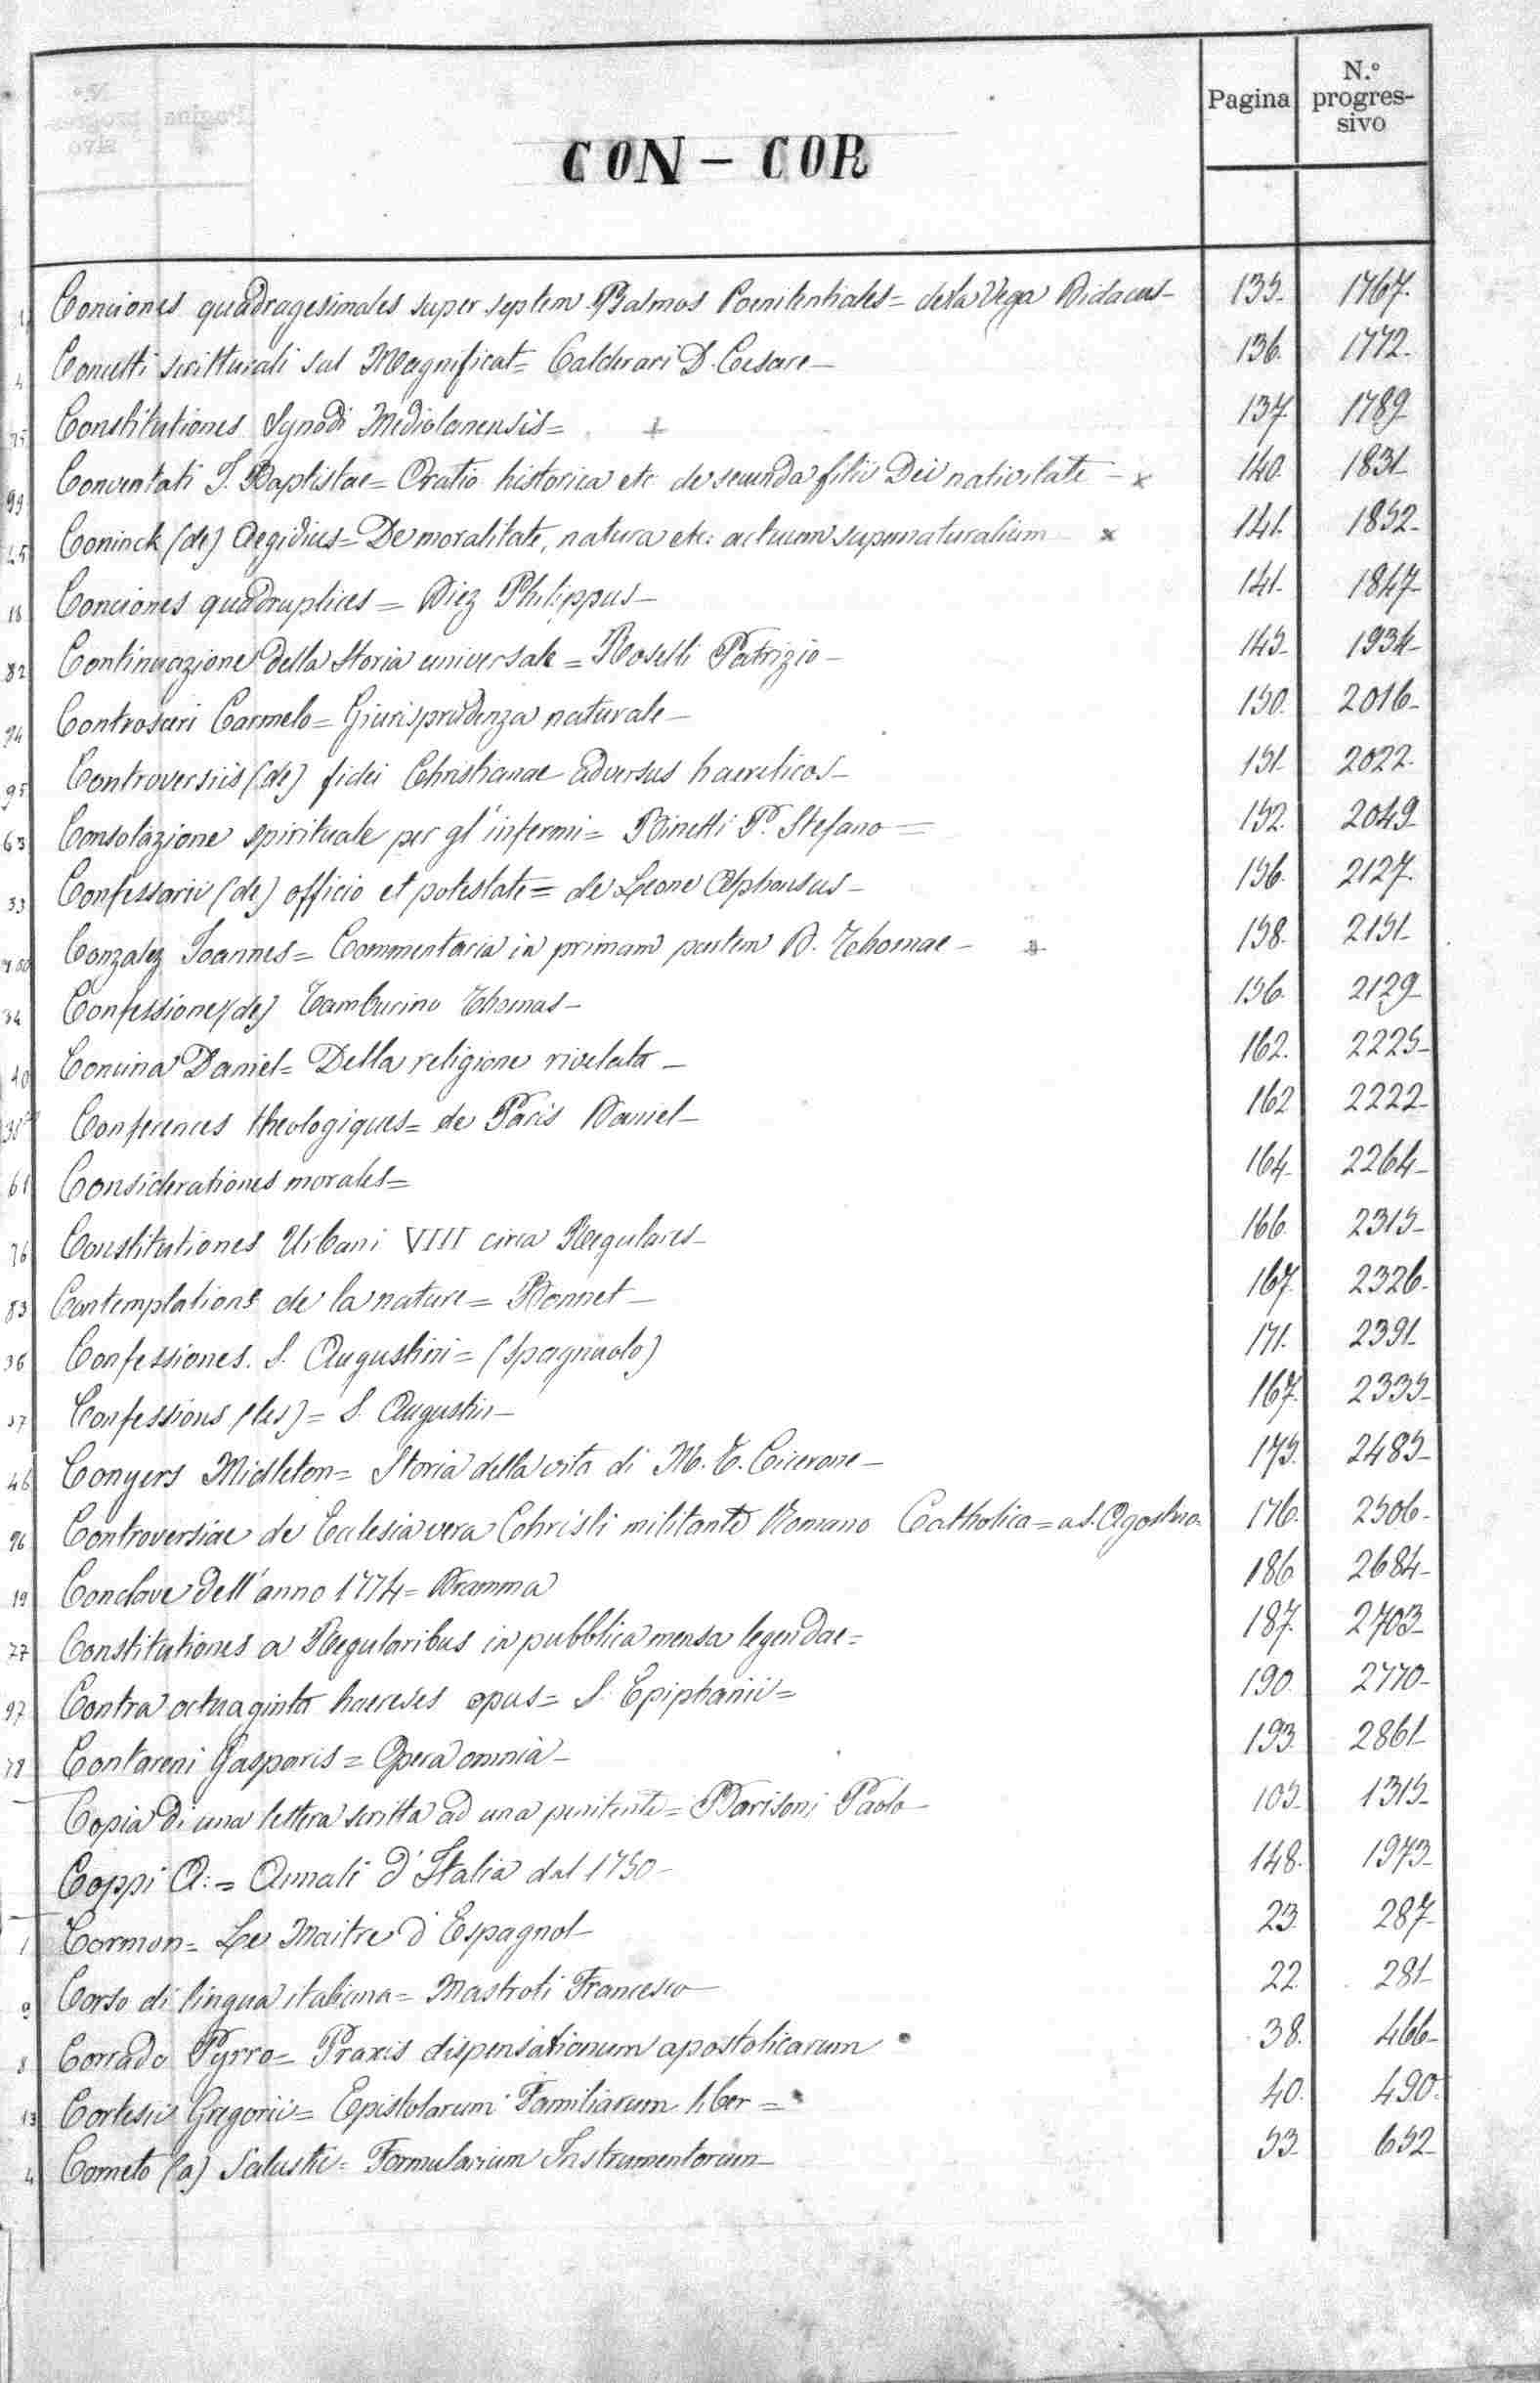 Pagina
N.º progres-
sivo
CON - COR
Conciones quadragesimales super septem Psalmos Poenitentiales = de la Vega Didacus - 135. 1767.
4 Concetti scritturali sul Magnificat = Calderari D. Cesare - 136. 1772.
75 Constitutiones Synodi Mediolanensis = + 137 1789
99 Conventati J. Baptistae = Oratio historica etc de secunda filii Dei nativitate - x 140. 1831
45 Coninck (de) Aegidius = De moralitate, natura etc: actuum supernaturalium x 141. 1832
18 Conciones quadruplices = Diez Philippus - 141. 1847
82 Continuazione della Storia universale = Roselli Patrizio - 145 1934
94 Controsceri Carmelo = Giurisprudenza naturale - 150. 2016
95 Controversiis (de) fidei Christianae adversus haereticos - 151 2022.
63 Consolazione spirituale per gl'infermi = Binetti P. Stefano = 152. 2049
33 Confessarii (de) officio et potestate = de Leone Alphonsus - 156. 2127.
100 Conzalez Joannes = Commentaria in primam partem D. Thomae - + 158. 2151
34 Confessione (de) Tamburino Thomas - 156. 2129
40 Concina Daniel = Della religione rivelata - 162. 2225
35 Conferences theologiques = de Paris Daniel - 162 2222
61 Considerationes morales = 164 2264
76 Constitutiones Urbani VIII circa Regulares - 166. 2315
83 Contemplations de la nature = Bonnet - 167. 2326.
36 Confessiones. S. Augustini = (Spagnuolo) 171. 2391
37 Confessions (les) = S. Augustin - 167. 2335
46 Conyers Midleton = Storia della vita di M. T. Cicerone - 175. 2485
96 Controversiae de Ecclesia vera Christi militante Romano Catholica = a S. Agostino. 176. 2506.
19 Conclave dell'anno 1774 = Dramma 186 2684
77 Constitutiones a Regularibus in pubblica mensa legendae = 187. 2703
97 Contra octuaginta haereses opus = S. Epiphanii = 190. 2770
78 Contareni Gasparis = Opera omnia - 193. 2861
Copia di una lettera scritta ad una penitente = Barisoni Paolo - 105 1315
Coppi A: = Annali d'Italia dal 1750 - 148. 1973
1 Cormon = Le Maitre d'Espagnol - 23 287
9 Corso di lingua italiana = Mastroti Francesco - 22 281
8 Corrado Pyrro = Praxis dispensationum apostolicarum 38. 466
13 Cortesii Gregorii = Epistolarum Familiarum liber = 40. 490.
4 Corneto (a) Salustii = Formularium Instrumentorum - 53 652